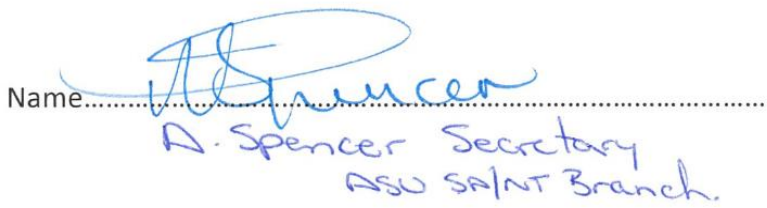 Name.............................................................................
A Spencer
A. Spencer Secretary
ASU SA/NT Branch.